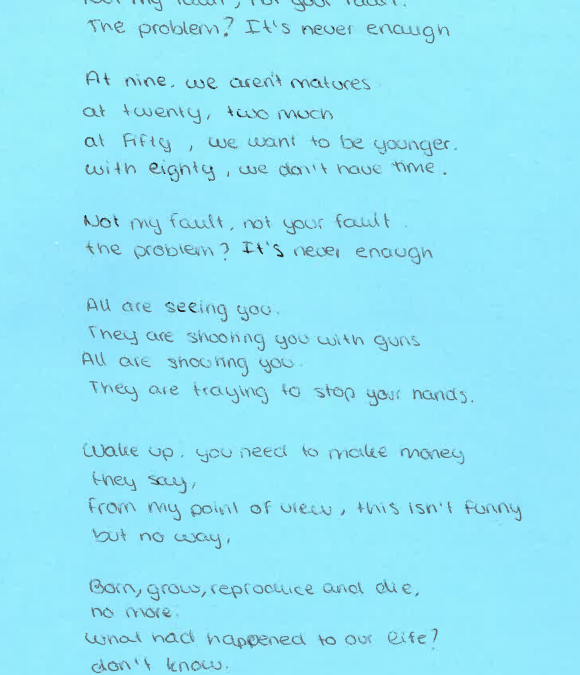 Not my fault, not your fault.
The problem? It's never enough
At nine, we aren't matures
at twenty, two much
at fifty, we want to be younger.
with eighty, we don't have time.
Not my fault, not your fault.
the problem? It's never enough
All are seeing you.
They are shooting you with guns
All are shouting you.
They are traying to stop your hands.
Wake up, you need to make money
they say,
from my point of view, this isn't funny
but no way,
Born, grow, reproduce and die,
no more.
what had happened to our life?
don't know.